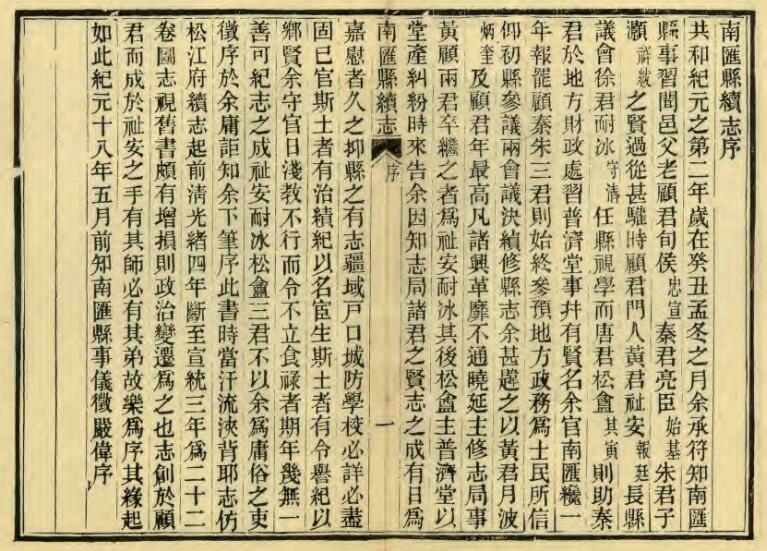 南匯縣續志序
共和紀元之第二年歲在癸丑孟冬之月余承符知南匯
縣事習聞邑父老顧君旬侯忠宣秦君亮臣始基朱君子
灝祥紱之賢過從甚驩時顧君門人黃君祉安報廷長縣
議會徐君耐冰守清任縣視學而唐君松盦其寅則助秦
君於地方財政處習普濟堂事幷有賢名余官南匯纔一
年報罷顧秦朱三君則始終參預地方政務爲士民所信
仰初縣參議兩會議決續修縣志余甚韙之以黃君月波
炳奎及顧君年最高凡諸興革靡不通曉延主修志局事
黃顧兩君卒繼之者爲祉安耐冰其後松盦主普濟堂以
堂產糾紛時來告余因知志局諸君之賢志之成有日爲
南匯縣續志 序 一
嘉慰者久之抑縣之有志疆域戶口城防學校必詳必盡
固已官斯土者有治績紀以名宦生斯土者有令譽紀以
鄉賢余守官日淺教不行而令不立食祿者期年幾無一
善可紀志之成祉安耐冰松盦三君不以余爲庸俗之吏
徵序於余庸詎知余下筆序此書時當汗流浹背耶志仿
松江府續志起前淸光緒四年斷至宣統三年爲二十二
卷圖志視舊書頗有增損則政治變遷爲之也志創於顧
君而成於祉安之手有其師必有其弟故樂爲序其緣起
如此紀元十八年五月前知南匯縣事儀徵嚴偉序